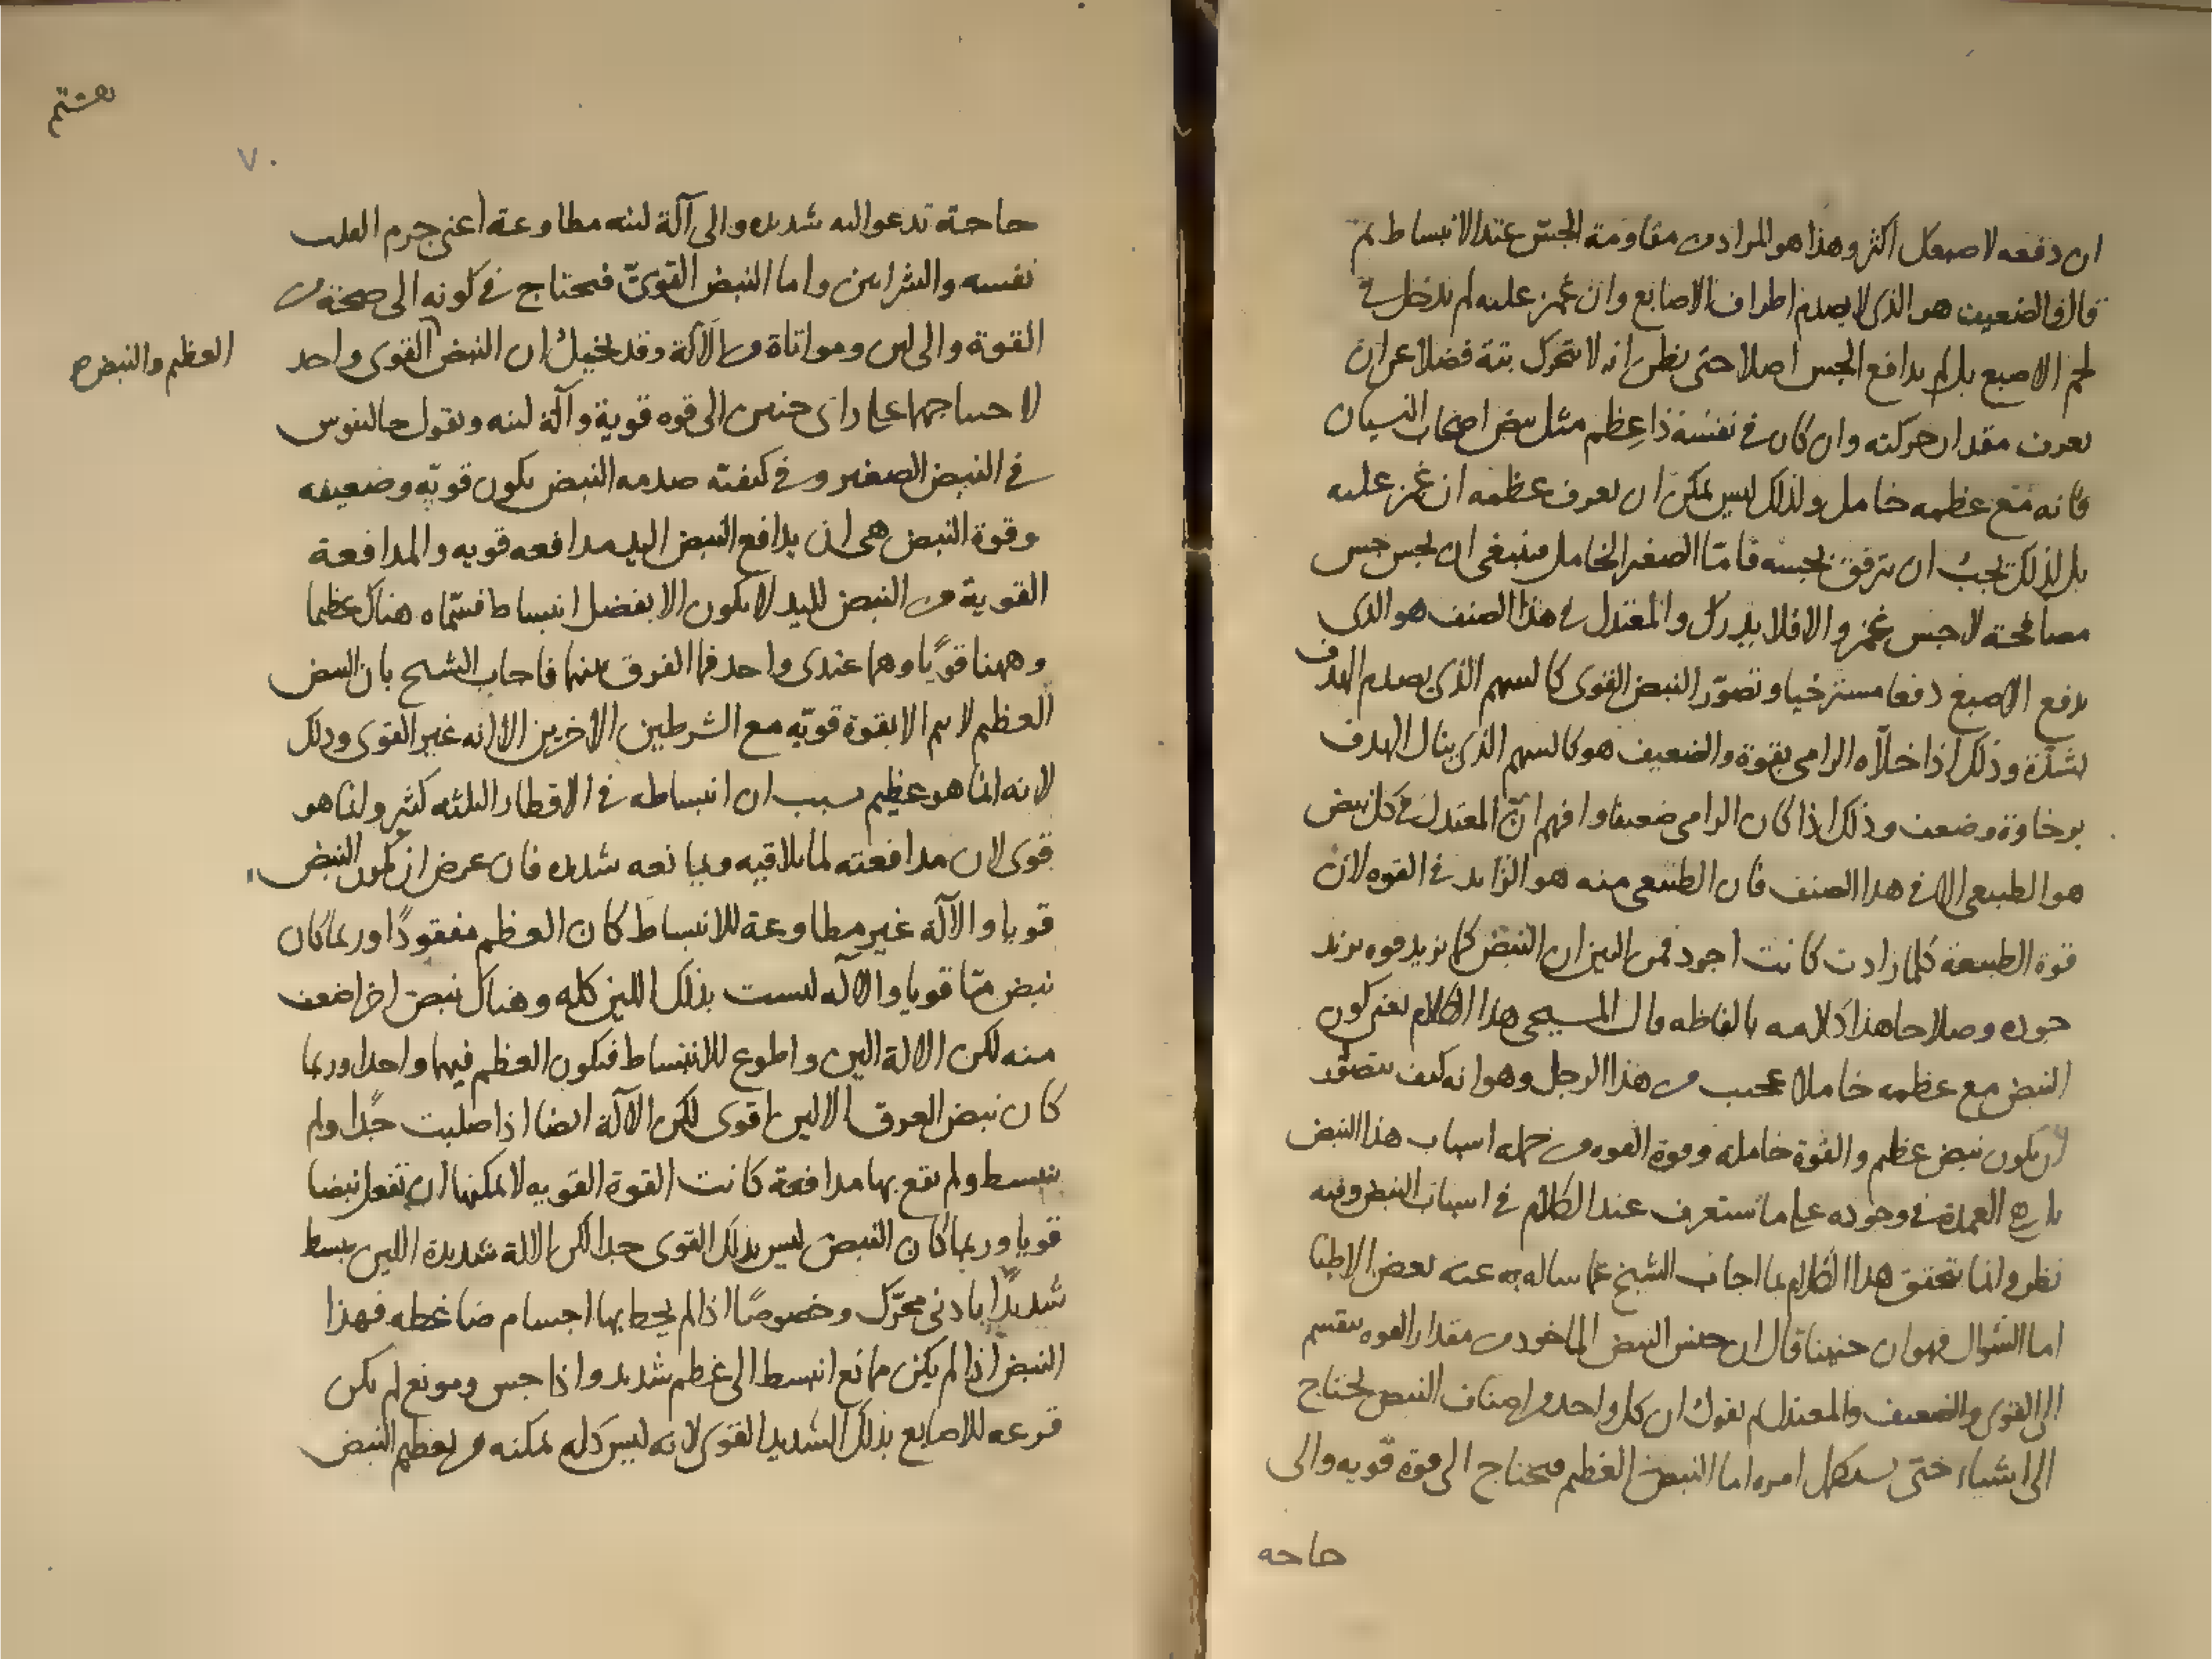 ان دفعه لا صعكل اكثر وهذا هو المراد من مقاومة الجسّ عند الانبساط ثم
قال والضعيف هو الذى لا يصدم اطراف الاصابع وان غمز عليه لم يدخل فى
لحم الاصبع بل لم يدافع الجس اصلا حتى يظن انه لا يتحرك بتة فضلا عن ان
يعرف مقدار حركته وان كان فى نفسه ذا عظم مثل نبض اصحاب النسيان
فانه مع عظمه خامل ولذلك ليس يمكن ان يعرف عظمه ان غمز عليه
بل لذلك يجب ان يترفق بجسه فامّا الصغير الخامل فينبغى ان يجس جس
مصافحة لا جس غمز والا فلا يدرك والمعتدل فى هذا الصنف هو الذى
يدفع الاصبع دفعا مسترخيا وتصوّر النبض القوى كالسهم الذى يصدم الهدف
بشدّة وذلك اذا خلاّه الرامى بقوة والضعيف هو كالسهم الذى ينال الهدف
برخاوة وضعف وذلك اذا كان الرامى ضعيفا وافهم انّ المعتدل فى كل نبض
هو الطبيعى الا فى هذا الصنف فان الطبيعى منه هو الزايد فى القوه لان
قوة الطبيعة كلما زادت كانت اجود فمن البين ان النبض كلما يزيد قوه يزيد
جوده وصلاحا هذا كلامه بالفاظه قال المسيحى هذا الكلام يعنى كون
النبض مع عظمه خاملا عجيب من هذا الرجل وهو انه كيف يتصور
ان يكون نبض عظيم والقوة خاملة وقوة القوه من جملة اسباب هذا النبض
بل هى العمدة فى وجوده على ما ستعرف عند الكلام فى اسباب النبض وفيه
نظر وانما تحقق هذا الكلام بما اجاب الشيخ عما ساله به عنه بعض الاطبا
اما السّوال فهو ان حنينا قال ان جنس النبض الماخوذ من مقدار القوه ينقسم
الى القوى والضعيف والمعتدل ثم نقول ان كل واحد من اصناف النبض يحتاج
الى اشياء حتى يستكمل امره اما النبض العظيم فيحتاج الى قوة قويه والى
حاحه
هشتم
٧٠
حاجة تدعو اليه شديده والى آلة لينه مطاوعة اعنى جرم القلب
نفسه والشرايين واما النبض القوىّ فيحتاج فى كونه الى صحة من
القوة والى لين ومواتاة من الآلة وقد يخيل ان النبض القوى واحد
العظيم والنبض
لاحتياجهما على راى حنين الى قوه قوية وآلة لينه ويقول جالينوس
فى النبض الصغير وفى كيفيّة صدمه النبض يكون قويّه وضعيفه
وقوة النبض هى ان يدافع النبض اليد مدافعه قويه والمدافعة
القوية من النبض لليد لا يكون الا بفضل انبساط فسمّاه هناك عظيما
وههنا قويًا وهما عندى واحد فما الفرق بينهما فاجاب الشيخ بان النبض
العظيم لا يتم الا بقوة قويّه مع الشرطين الاخرين الا انه غير القوى وذلك
لانه انما هو عظيم بسبب ان انبساطه فى الاقطار الثلثه كثير وانما هو
قوى لان مدافعته لما يلاقيه ويمانعه شديده فان عرض ان يكون النبض
قويا والآلة غير مطاوعة للانبساط كان العظم مفقودًا وربما كان
نبض مّا قويا والآله ليست بذلك اللين كله وهناك نبض اخر اضعف
منه لكن الالة الين واطوع للانبساط فيكون العظم فيهما واحدا وربما
كان نبض العرق الالين اقوى لكن الآلة ايضا اذا صلبت جدًا ولم
ينبسط ولم تقع بها مدافعة كانت القوة القويه لا يمكنها ان تفعل نبضا
قويا وربما كان النبض ليس بذلك القوى جدا لكن الالة شديدة اللين ينبسط
شديدًا بادنى محرّك وخصوصًا اذا لم يحط بها اجسام ضاغطه فهذا
النبض اذا لم يكن مانع انبسط الى عظم شديد واذا جس ومونع لم يكن
قرعه للاصابع بذلك الشديد القوى لانه ليس كله يمكنه من يعظم النبض